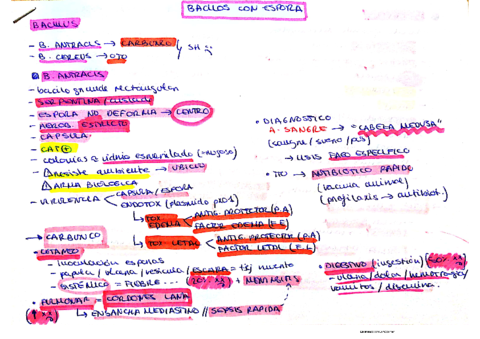 BACILOS CON ESPORA
BACILLUS
- B. ANTRACIS → CARBUNCO
- B. CEREUS → OJO
SH
B. ANTRACIS
- bacilo grande rectangular
- SERPENTINA /
- ESPORA NO DEFORMA → CENTRO
- AEROB. ESTRICTO
- CAPSULA
- CAT +
- colonias a vidrio esmerilado (rugoso)
- resiste ambiente → UBICUO
ARMA BIOLOGICA
- VIRULENCIA CAPSULA / ESPORA
ENDOTOX (plasmido pxo1)
↳ TOX EDEMA ANTIG. PROTECTOR (P.A)
FACTOR EDEMA (F.E)
↳ TOX LETAL ANTIG. PROTECTOR (P.A)
FACTOR LETAL (F.L)
• DIAGNOSTICO
A. SANGRE → "CABEZA MEDUSA"
(sangre / suero / pus)
↳ LISIS FAGO ESPECIFICO
• TTO → ANTIBIOTICO RAPIDO
(vacuna animal)
(profilaxis → antibiot.)
→ CARBUNCO
• CETANEO
- inoculación esporas
- papula / ulcera / vesicula / ESCARA = tej muerto
- SISTÉMICO = FIEBRE... 20% + MENINGITIS
• PULMONAR - CORDONES LANA
↳ ENSANCHA MEDIASTINO // SEPSIS RAPIDA
• DIGESTIVO (ingestión)
- ulcera / dolor / hemorragia /
vomitos / disemina.